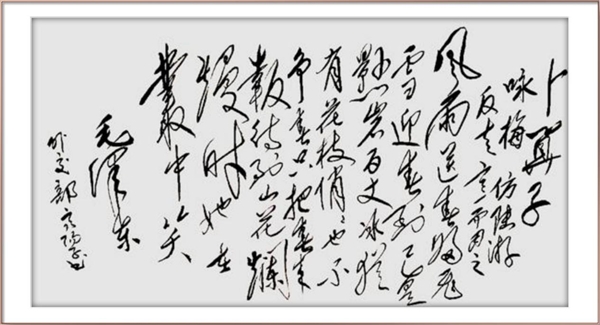 卜算子
咏梅 仿陆游
反其意而用之
风雨送春歸飞
雪迎春到已是
懸岩百丈冰犹
有花枝俏俏也不
争春只把春来
報待到山花爛
熳时她在
叢中笑
毛泽东
外交部